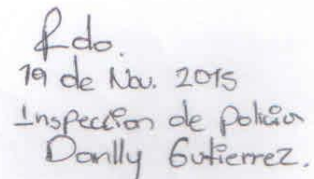 Rdo.
19 de Nov. 2015
Inspeccion de policia
Danlly Gutierrez.